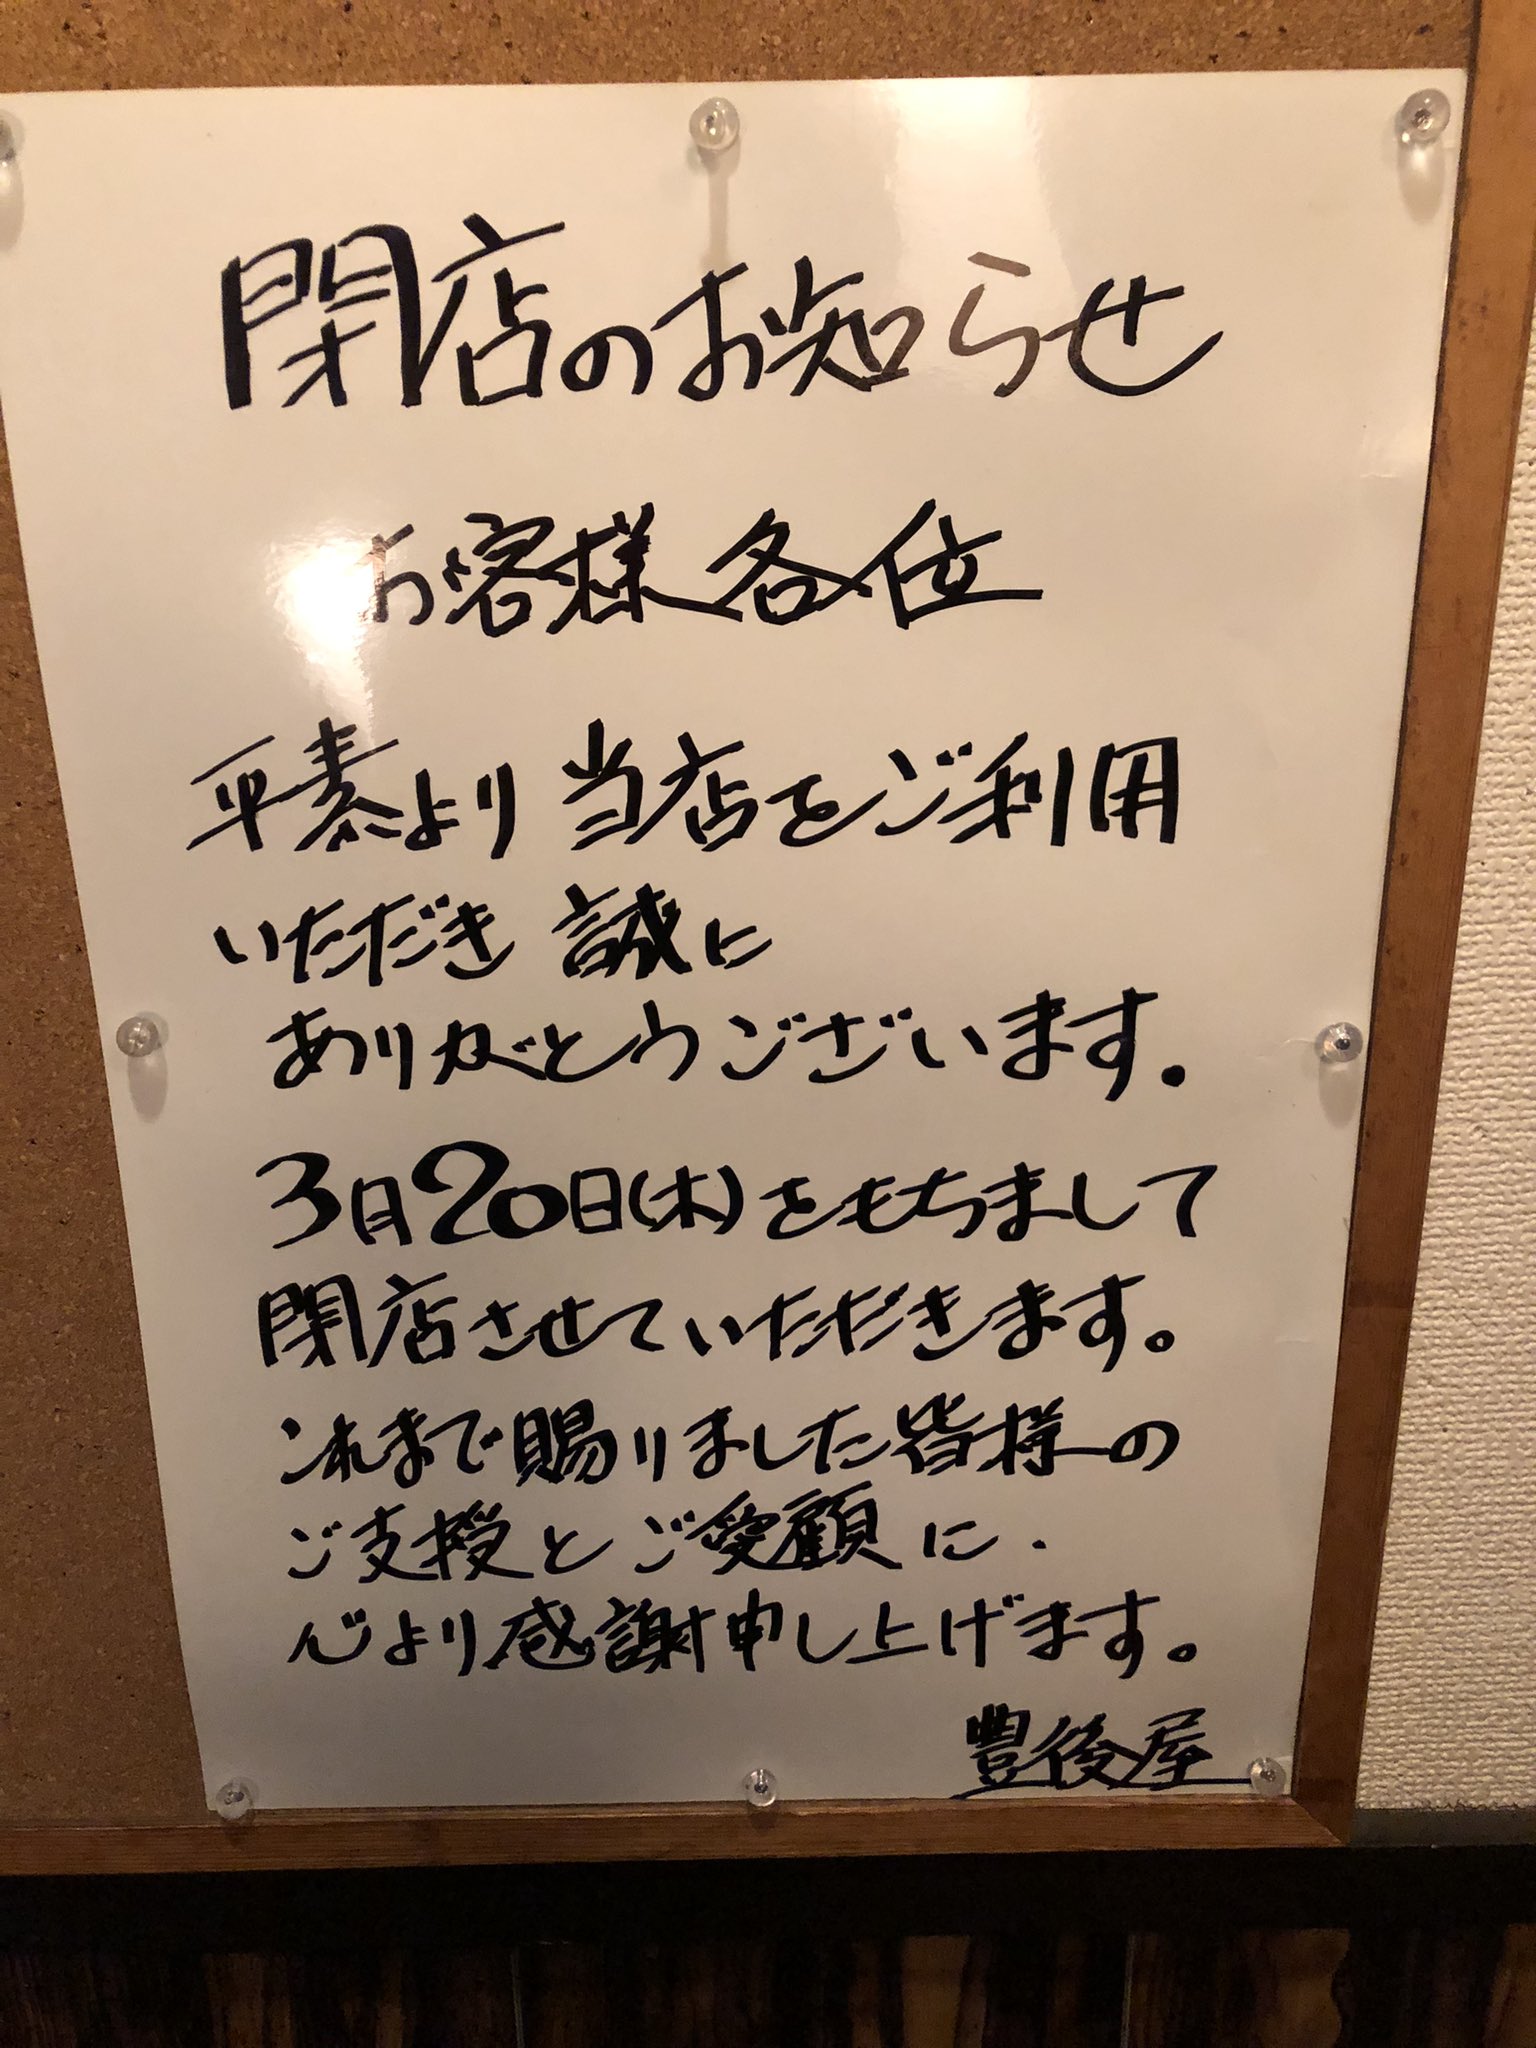 閉店のお知らせ
お客様各位
平素より当店をご利用
いただき 誠に
ありがとうございます。
3月20日(木)をもちまして
閉店させていただきます。
これまで賜りました皆様の
ご支援とご愛顧に、
心より感謝申し上げます。
豊後屋